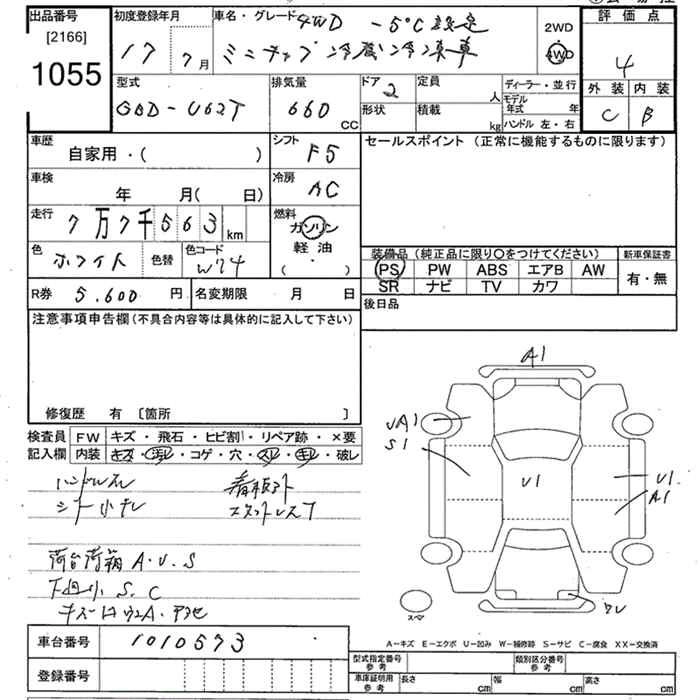 出品番号
[2166]
1055
初度登録年月
17 年 7 月
車名・グレード 4WD -5℃設定
ミニキャブ 冷蔵冷凍車
2WD
4WD
評価点
4
外装 内装
C B
型式
GBD-U62T
排気量
660 CC
ドア 2
形状
定員 人
積載 kg
ディーラー・並行
モデル年式 年
ハンドル 左・右
車歴
自家用・( )
シフト
F5
セールスポイント (正常に機能するものに限ります)
車検
年 月( 日)
冷房
AC
走行
7万7千563 km
燃料
ガソリン
軽油
( ・ )
色
ホワイト
色替
色コード
W74
装備品 (純正品に限り○をつけてください)
新車保証書
PS PW ABS エアB AW
SR ナビ TV カワ
有・無
R券 5.600 円
名変期限 月 日
後日品
注意事項申告欄(不具合内容等は具体的に記入して下さい)
修復歴 有 〔箇所 〕
検査員 FW キズ・飛石・ヒビ割・リペア跡・×要
記入欄 内装 キズ・汚レ・コゲ・穴・スレ・キレ・破レ
ハンドルスレ
シート小キレ
荷台荷箱 A・U・S
下廻小 S.C
A1
UA1
S1
U1
U1
A1
スペア
A-キズ E-エクボ U-凹み W-補修跡 S-サビ C-腐食 XX-交換済
車台番号 1010573
登録番号
型式指定番号 参考
類別区分番号 参考
車庫証明用 参考
長さ cm
幅 cm
高さ cm